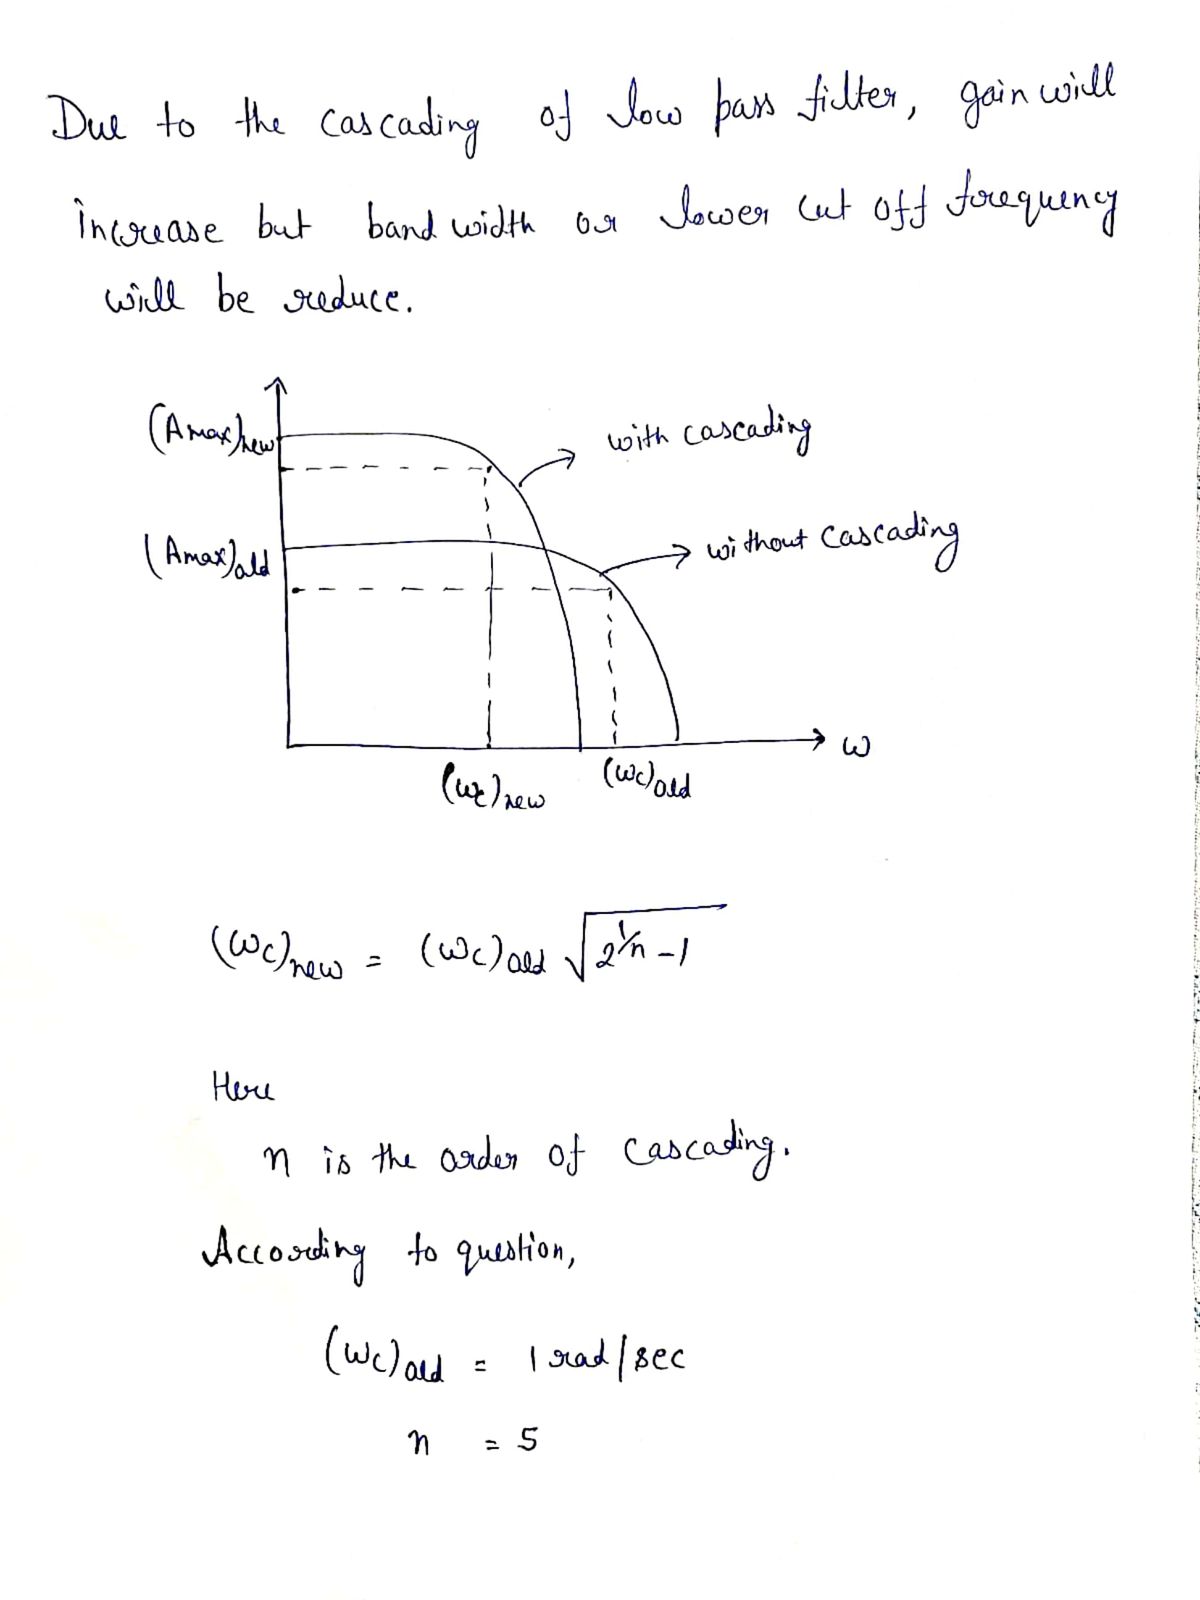 Due to the cascading of low pass filter, gain will
increase but band width or lower cut off frequency
will be reduce.
(Amax)new
with cascading
(Amax)old
without cascading
ω
(ωc)new
(ωc)old
(ωc)new = (ωc)old √(2^1/n - 1)
Here
n is the order of cascading.
According to question,
(ωc)old = 1 rad/sec
n = 5